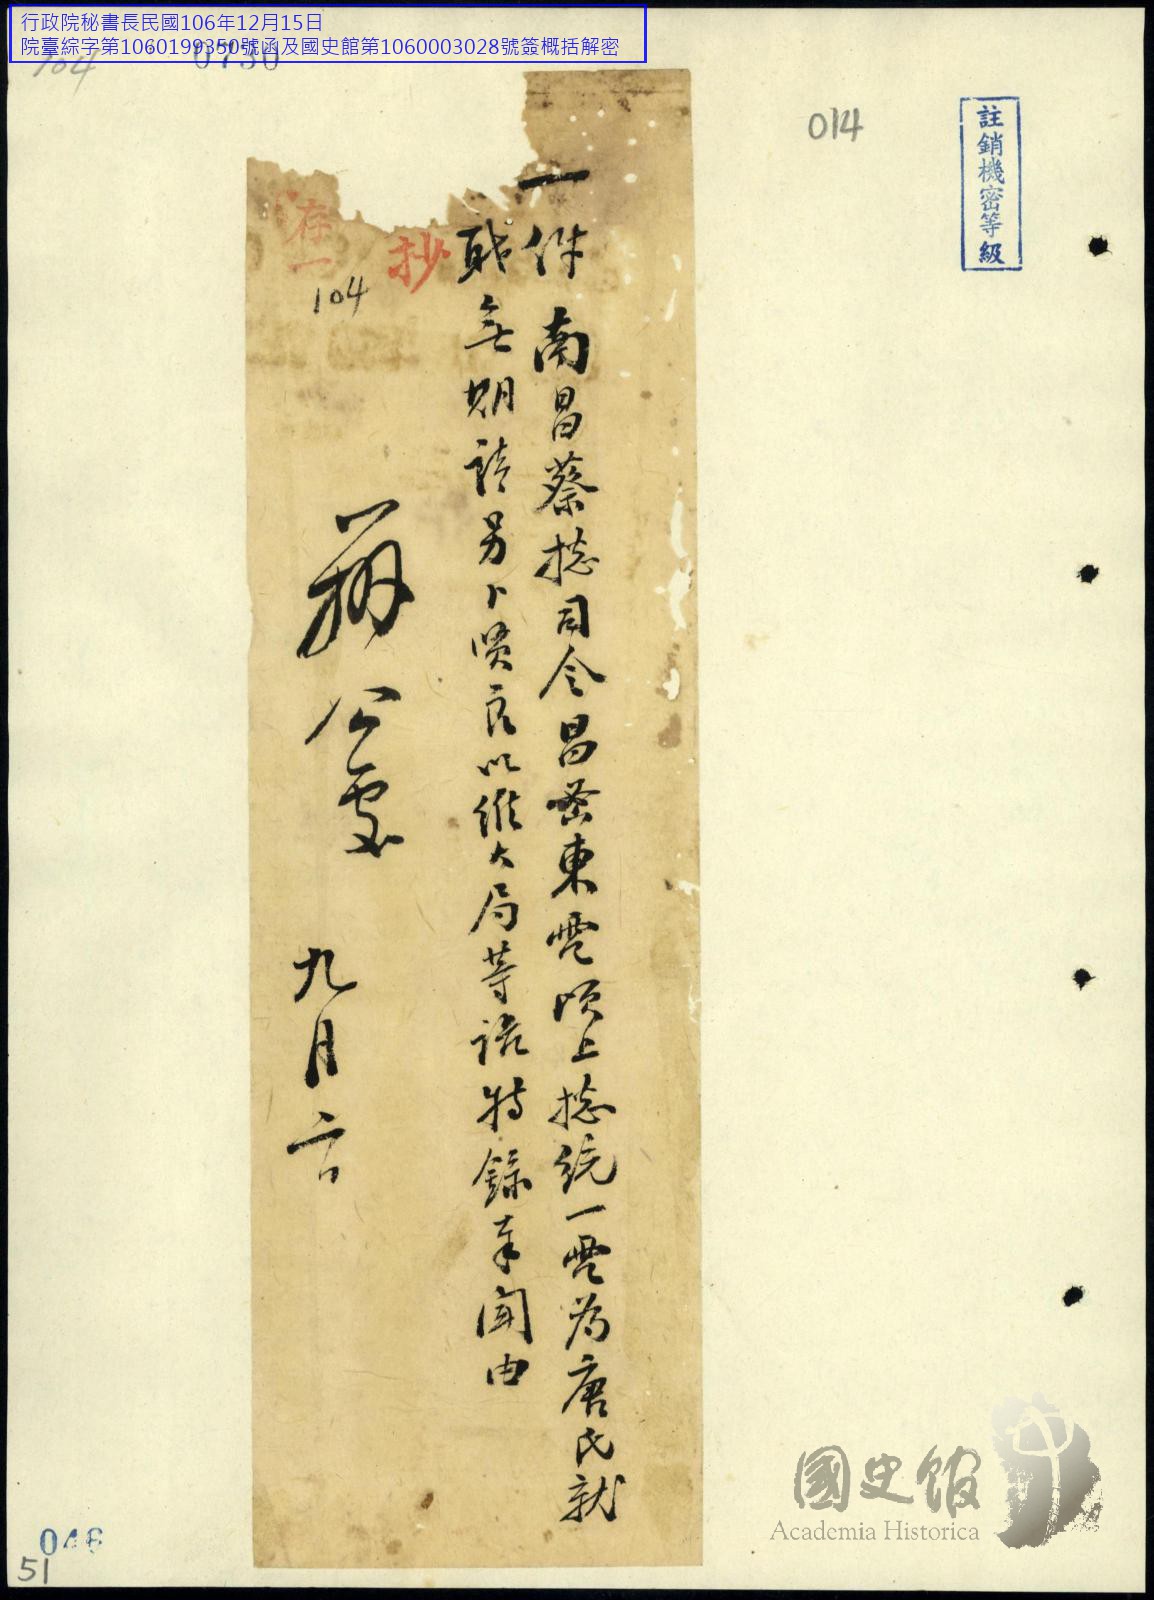 行政院秘書長民國106年12月15日
院臺綜字第1060199350號函及國史館第1060003028號簽概括解密
104
0730
014
註銷機密等級
一件南昌蔡總司令昌
東電
上總統一電為唐氏就
職無期請另卜賢良以維大局等語特錄奉聞由
抄
存一
104
公電
九月
國史館
Academia Historica
046
51